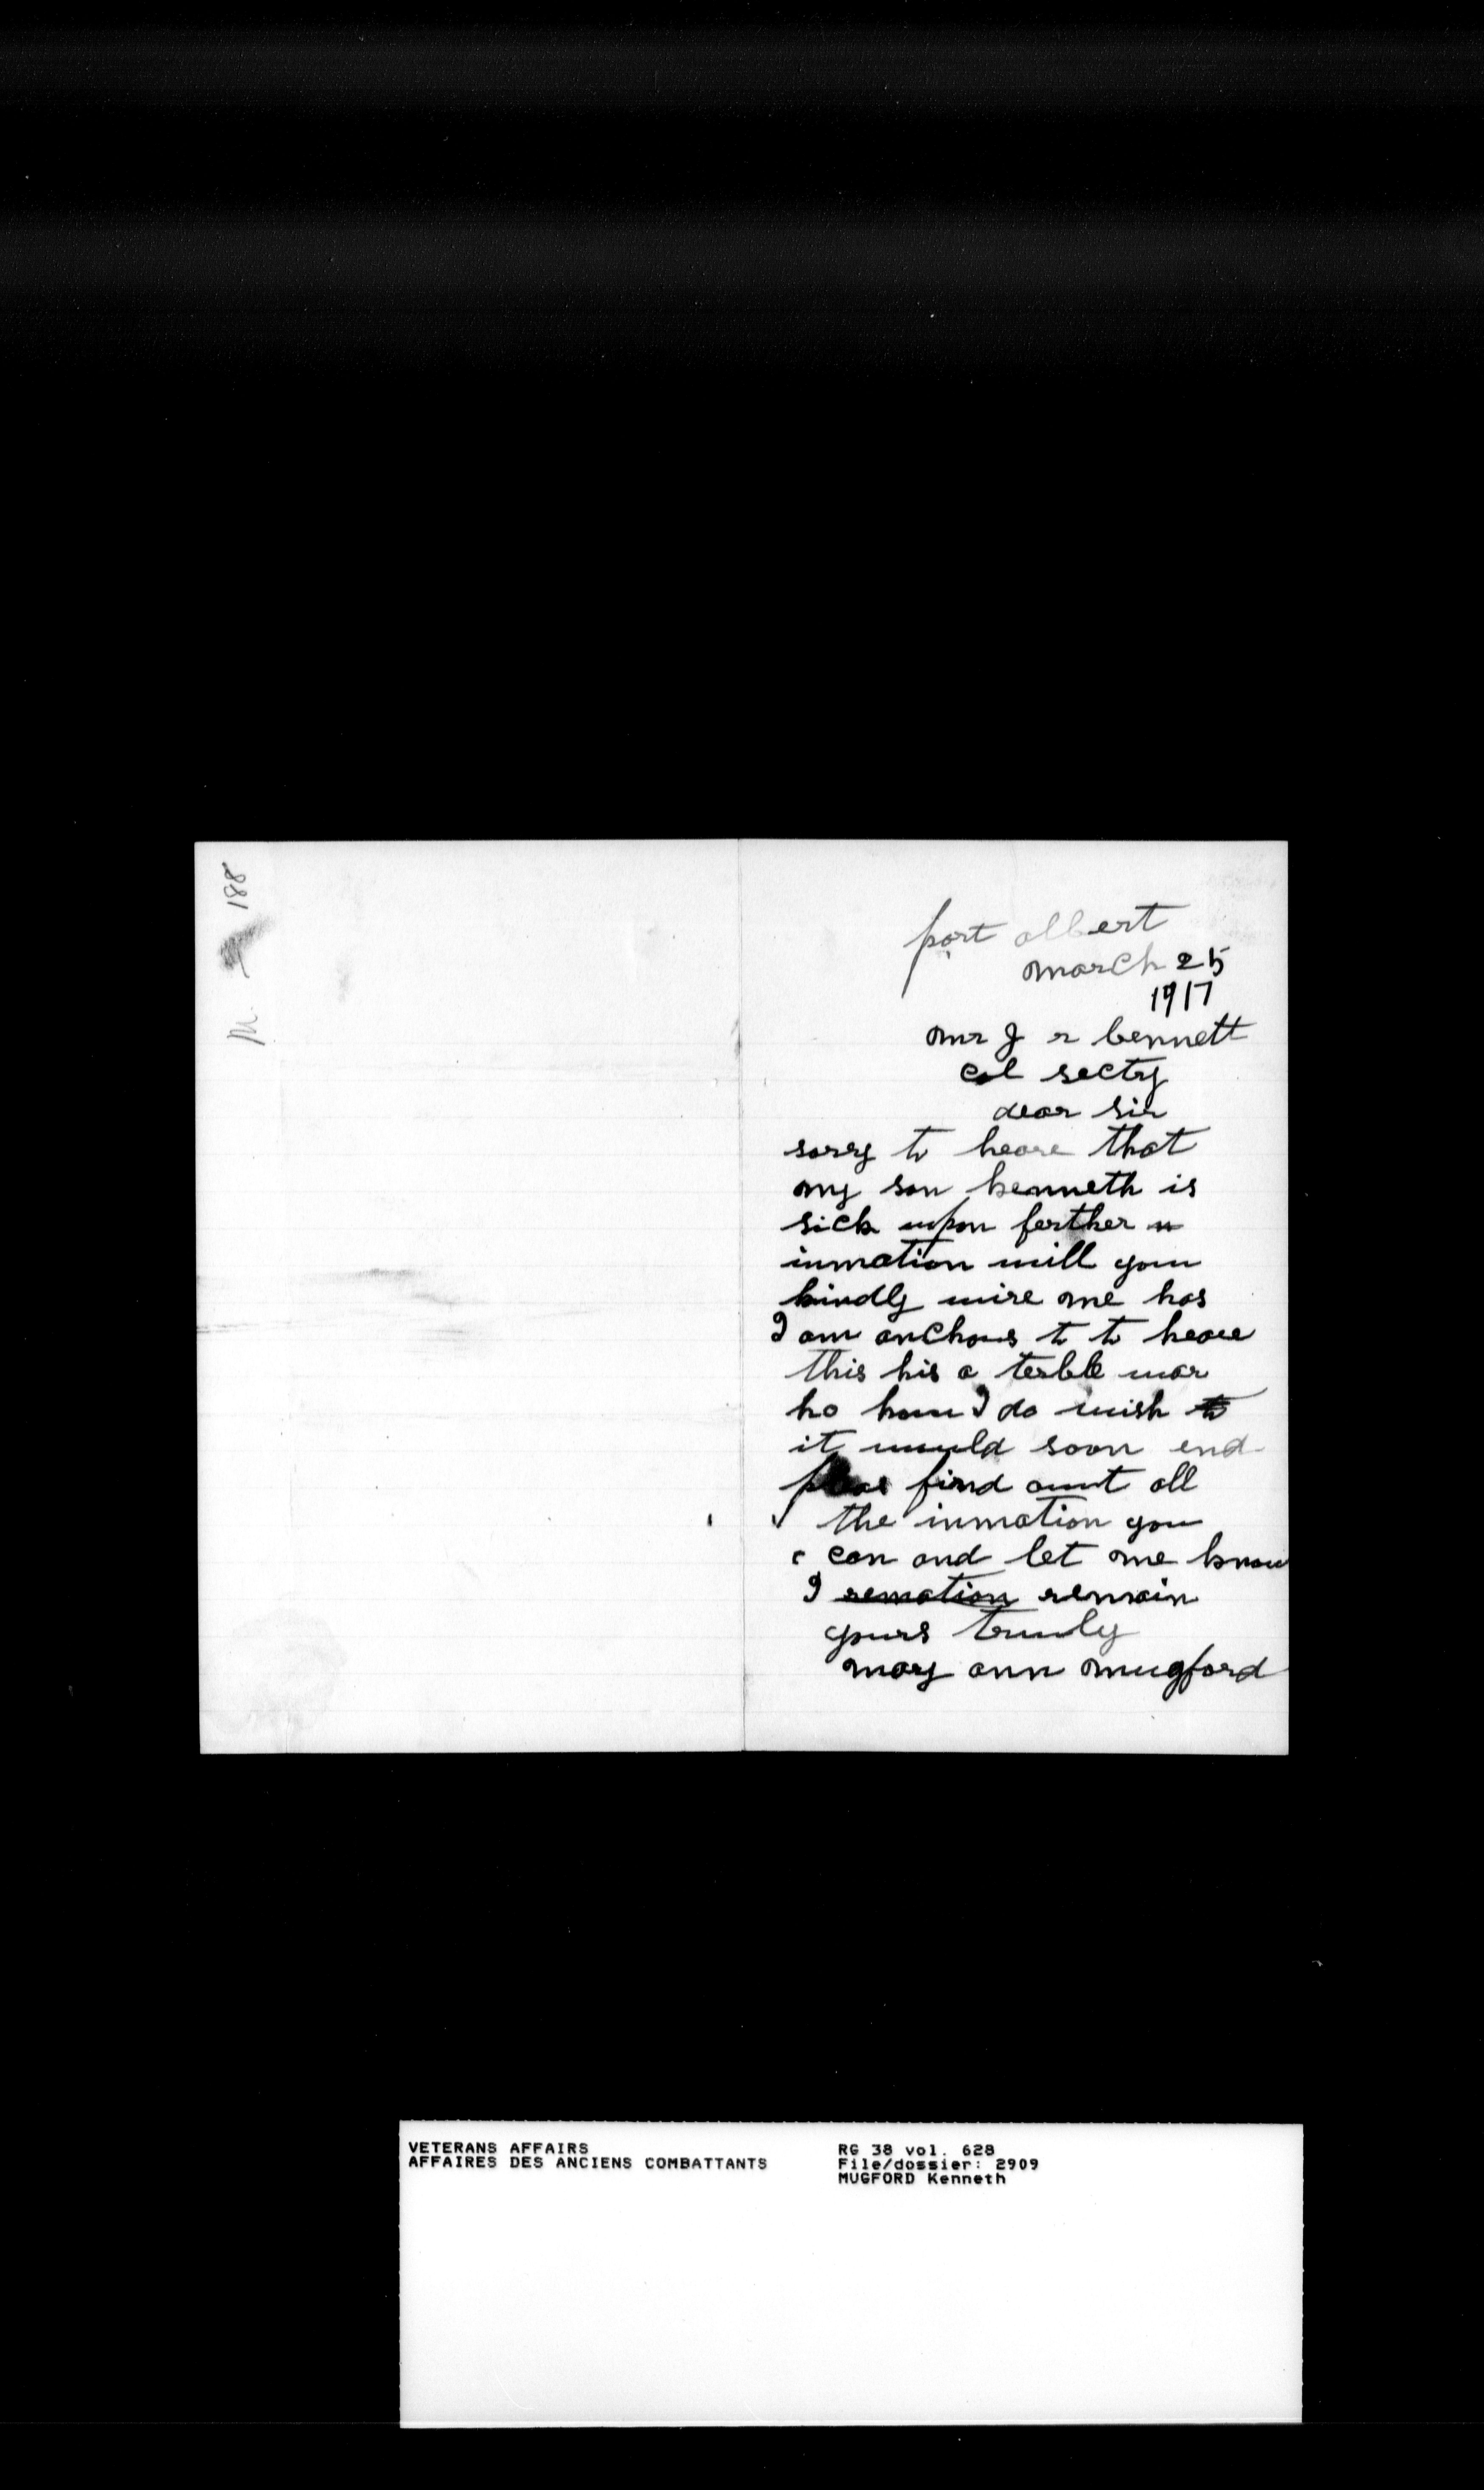 M. 188
port albert
march 25
1917
mr J r bennett
col sectry
dear sir
sorry to heare that
my son kenneth is
sick upon ferther
inmation will you
kindly wire me has
I am anchous to to heare
this his a terble war
ho how I do wish to
it would soon end
pleas find out all
the inmation you
can and let me know
I remation remain
yours truuly
mary ann mugford
VETERANS AFFAIRS
AFFAIRES DES ANCIENS COMBATTANTS
RG 38 vol. 628
File/dossier: 2909
MUGFORD Kenneth